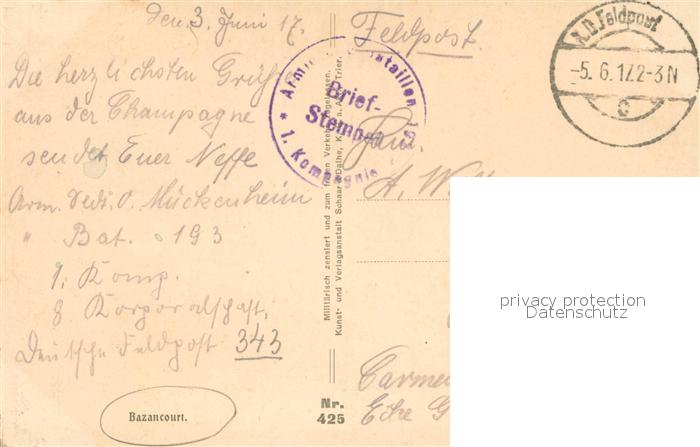 den 3. Juni 17.
Feldpost.
Die herzlichsten Grüße
aus der Champagne
sendet Euer Neffe
Arm. O. Mückenheim
" Bat. 193
1. Komp.
8 Korporalschaft.
Deutsche Feldpost 343
Bazancourt.
Militärisch zensiert und zum freien Verkehr zugelassen.
Kunst- und Verlagsanstalt Schaar & Dathe, Trier.
Nr.
425
Brief-
Stempel
* 1. Kompagnie
K.D. Feldpost
-5.6.17.2-3N
c
A. W
Carmen
Ecke G
privacy protection
Datenschutz